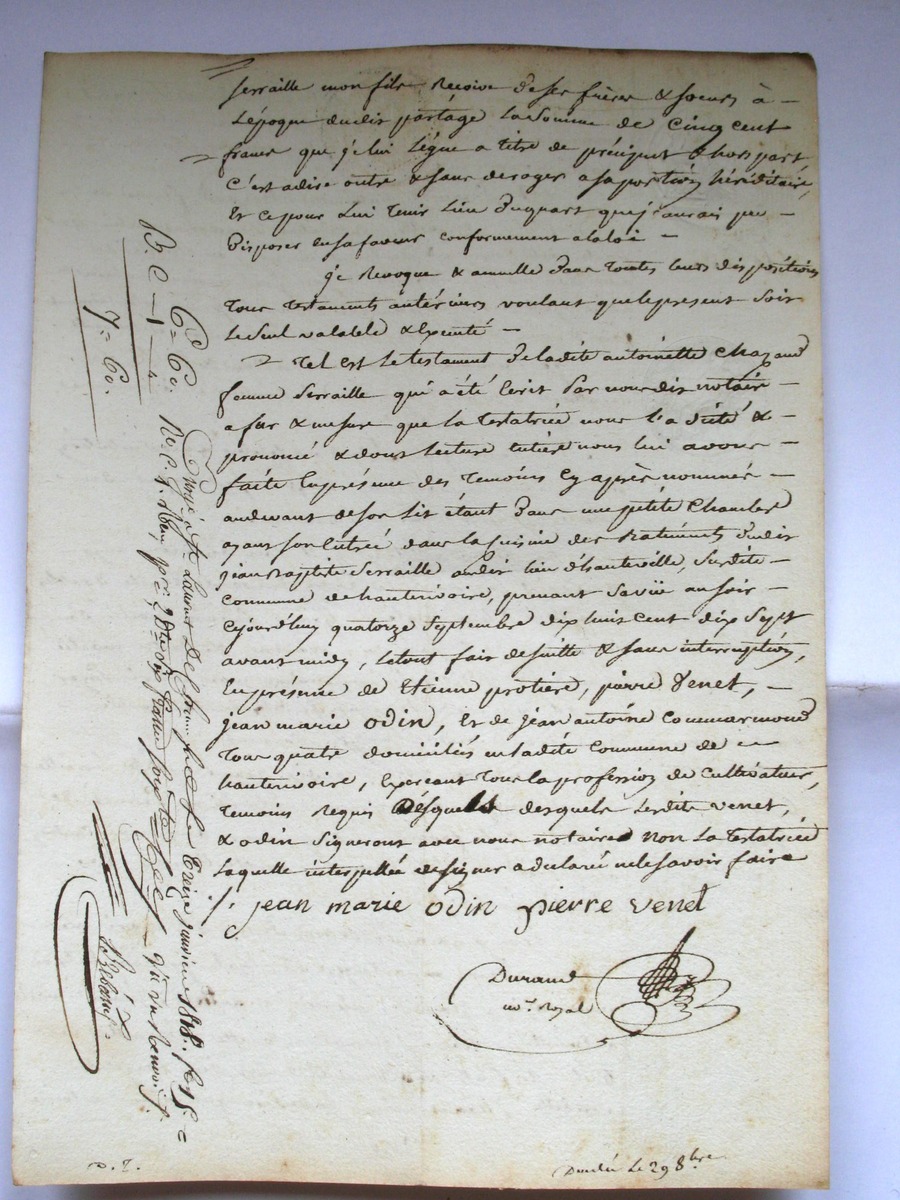 Serraille mon fils Recoive de ses frères & soeurs à
L'époque dudit partage La Somme de cinq cent
francs que je lui Légue a titre de préciput & hors part,
C'est adire outre & sans deroger a sa portion héréditaire,
Et ce pour Lui Tenir Lieu du quart que j'aurais pu
Disposer en sa faveur conformement a la loi
je Revoque & annulle dans Toutes leurs dispositions
Tous Testaments antérieurs voulant que le present soit
Le Seul valable & Executé
Tel est Le testament de ladite antoinette Chazaud
femme Serraille qui a été Ecrit Par nous dit notaire
a fur & mesure que la Testatrice nous l'a dicté &
prononcé & dont Lecture Entière nous lui avons
faite En présence des Temoins Cy après nommés
au devant de son Lit étant Dans une petite Chambre
ayant son Entrée dans la Cuisine des Batiments dudit
jean Baptiste Serraille au dit lieu d'hauteville, Susdite
commune de hauterivoire, prenant Sa vüe au soir
Cejourd'huy quatorze Septembre dix huit cent dix Sept
avant midy, le tout fait de suitte & sans interruption,
En présence de Etienne protière, pierre Venet,
jean marie odin, Et de jean antoine Commarmond
Tous quatre domiciliés en ladite Commune de
hauterivoire, Exercant Tous la profession de Cultivateur,
Temoins Requis desquels Lesdits venet,
& odin Signerons avec nous notaire non La Testatrice
Laquelle interpellée de signer a declaré ne le savoir faire
jean marie odin pierre venet
Durand
no.re Royal
Enrgé à St Laurent De Chamousset Le Treize janvier 1818. fo 15
6= 60.
1
7= 60.
D. T.
Le 29 8bre